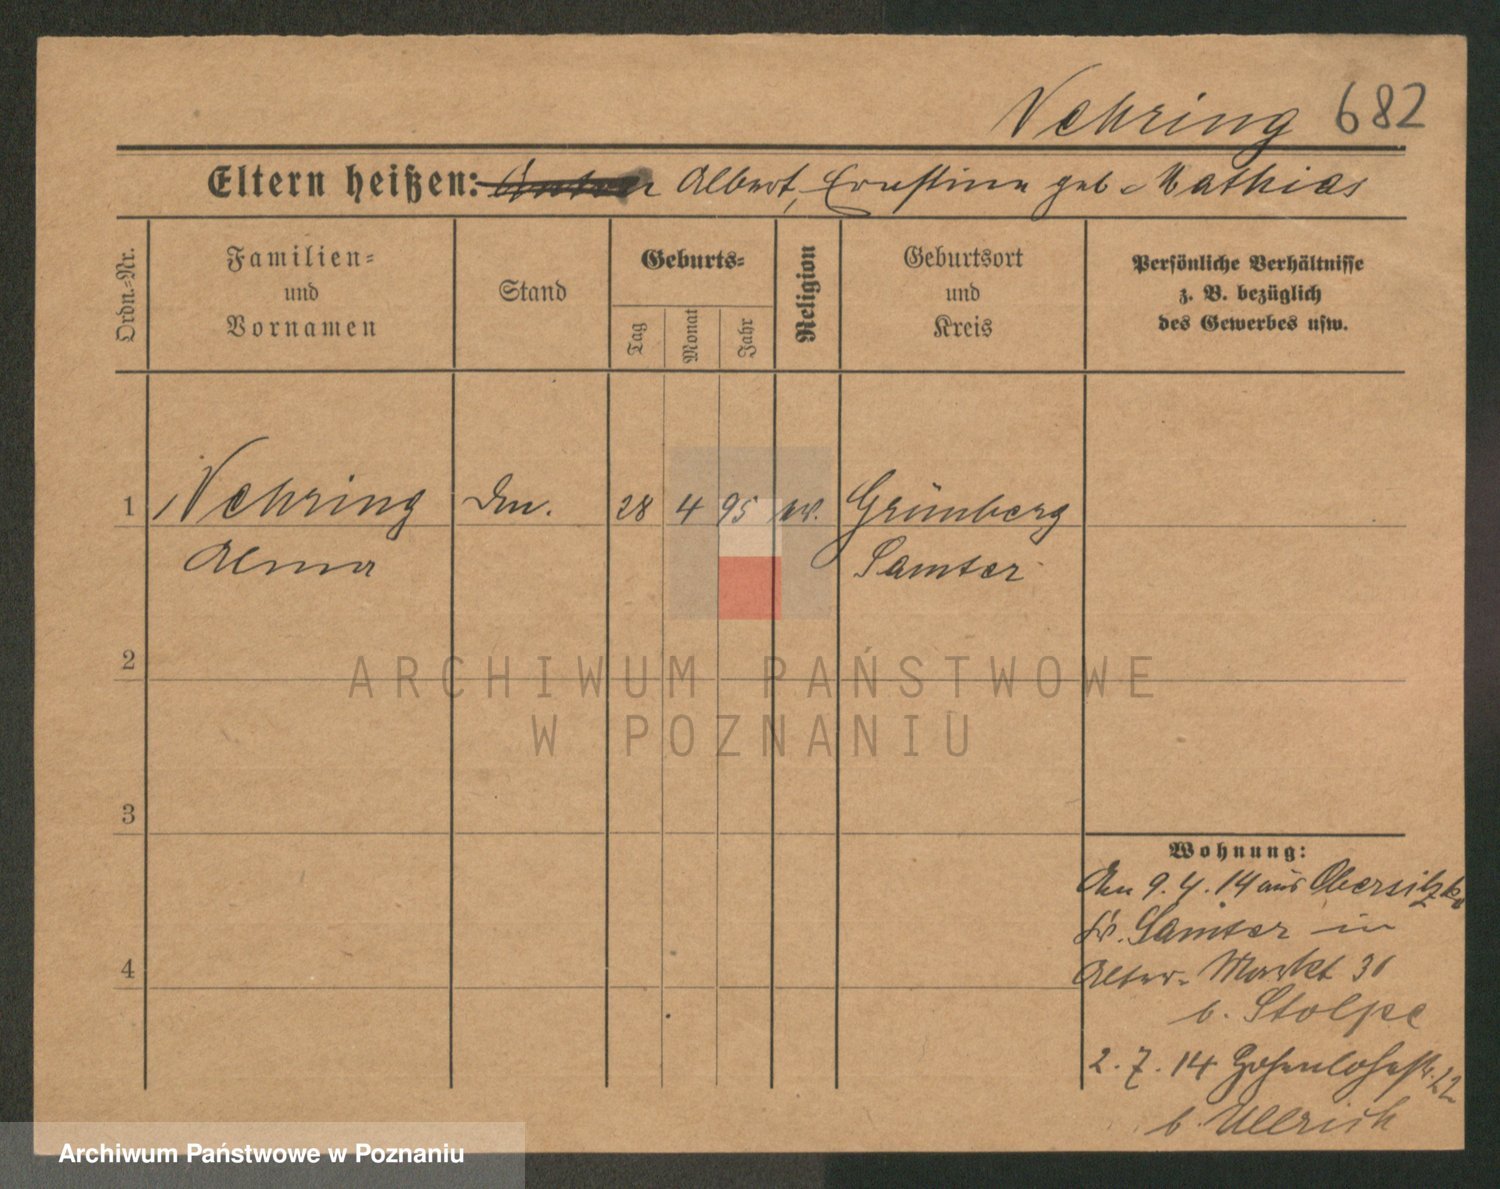 Nehring 682
Eltern heißen: Albert, Ernstine geb. Mathias
Ordn.-Nr.
Familien-
und
Vornamen
Stand
Geburts-
Tag
Monat
Jahr
Religion
Geburtsort
und
Kreis
Persönliche Verhältnisse
z. B. bezüglich
des Gewerbes usw.
1 Nehring 28 4 95 ev. Grünberg
Samter
2
3
4
Wohnung:
Den 9.4.14 aus Obersitzko
Kr. Samter in
Alter Markt
b. Stolpe
2.7.14 Hohenlohestr. 22
b. Ullrich
ARCHIWUM PAŃSTWOWE
W POZNANIU
Archiwum Państwowe w Poznaniu